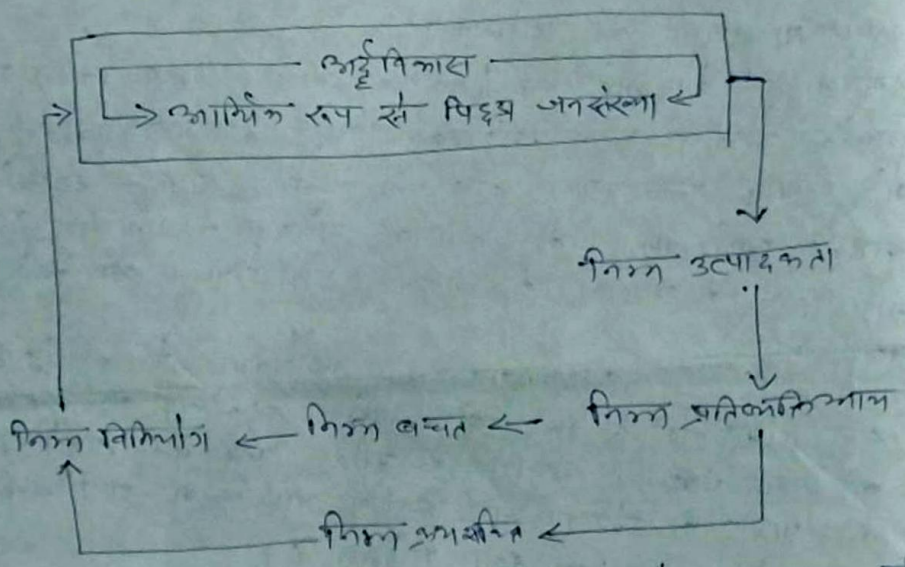 अर्द्धविकास
आर्थिक रूप से पिछड़ी जनसंख्या
निम्न उत्पादकता
निम्न प्रतिव्यक्ति आय
निम्न बचत
निम्न विनियोग
निम्न क्रयशक्ति